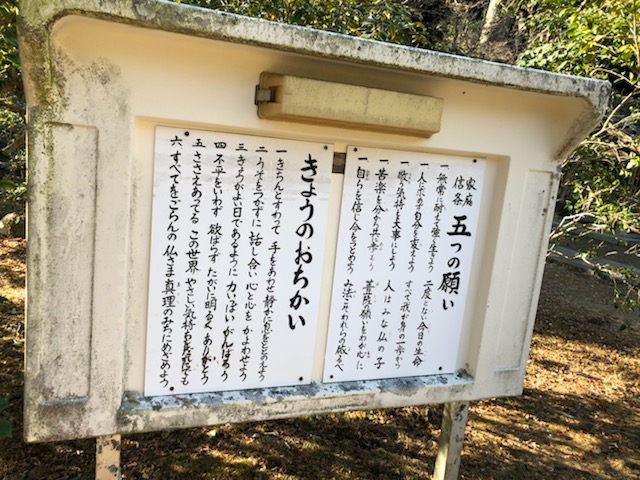 家庭
信条
五つの願い
一 無常に耐え強く生きよう 二度とない今日の生命
一 人をせめず自分を変えよう すべて我が身の一歩から
一 敬う気持を大事にしよう 人はみな仏の子
一 苦楽を分け共に歩もう 菩薩の願いをわが心に
一 自らを信じ今をつとめよう み法に
きょうのおちかい
一 きちんとすわって 手をあわせ 静かに息をととのえよう
二 うそをつかずに 話し合い 心と心を かよわせよう
三 きもちがよい日であるように 力いっぱい がんばろう
四 不平をいわず 欲ばらず たがいに明るく ありがとう
五 ささえあってる この世界 やさしい気持を
六 すべてをごらんの 仏さま 真理のみちにめざめよう